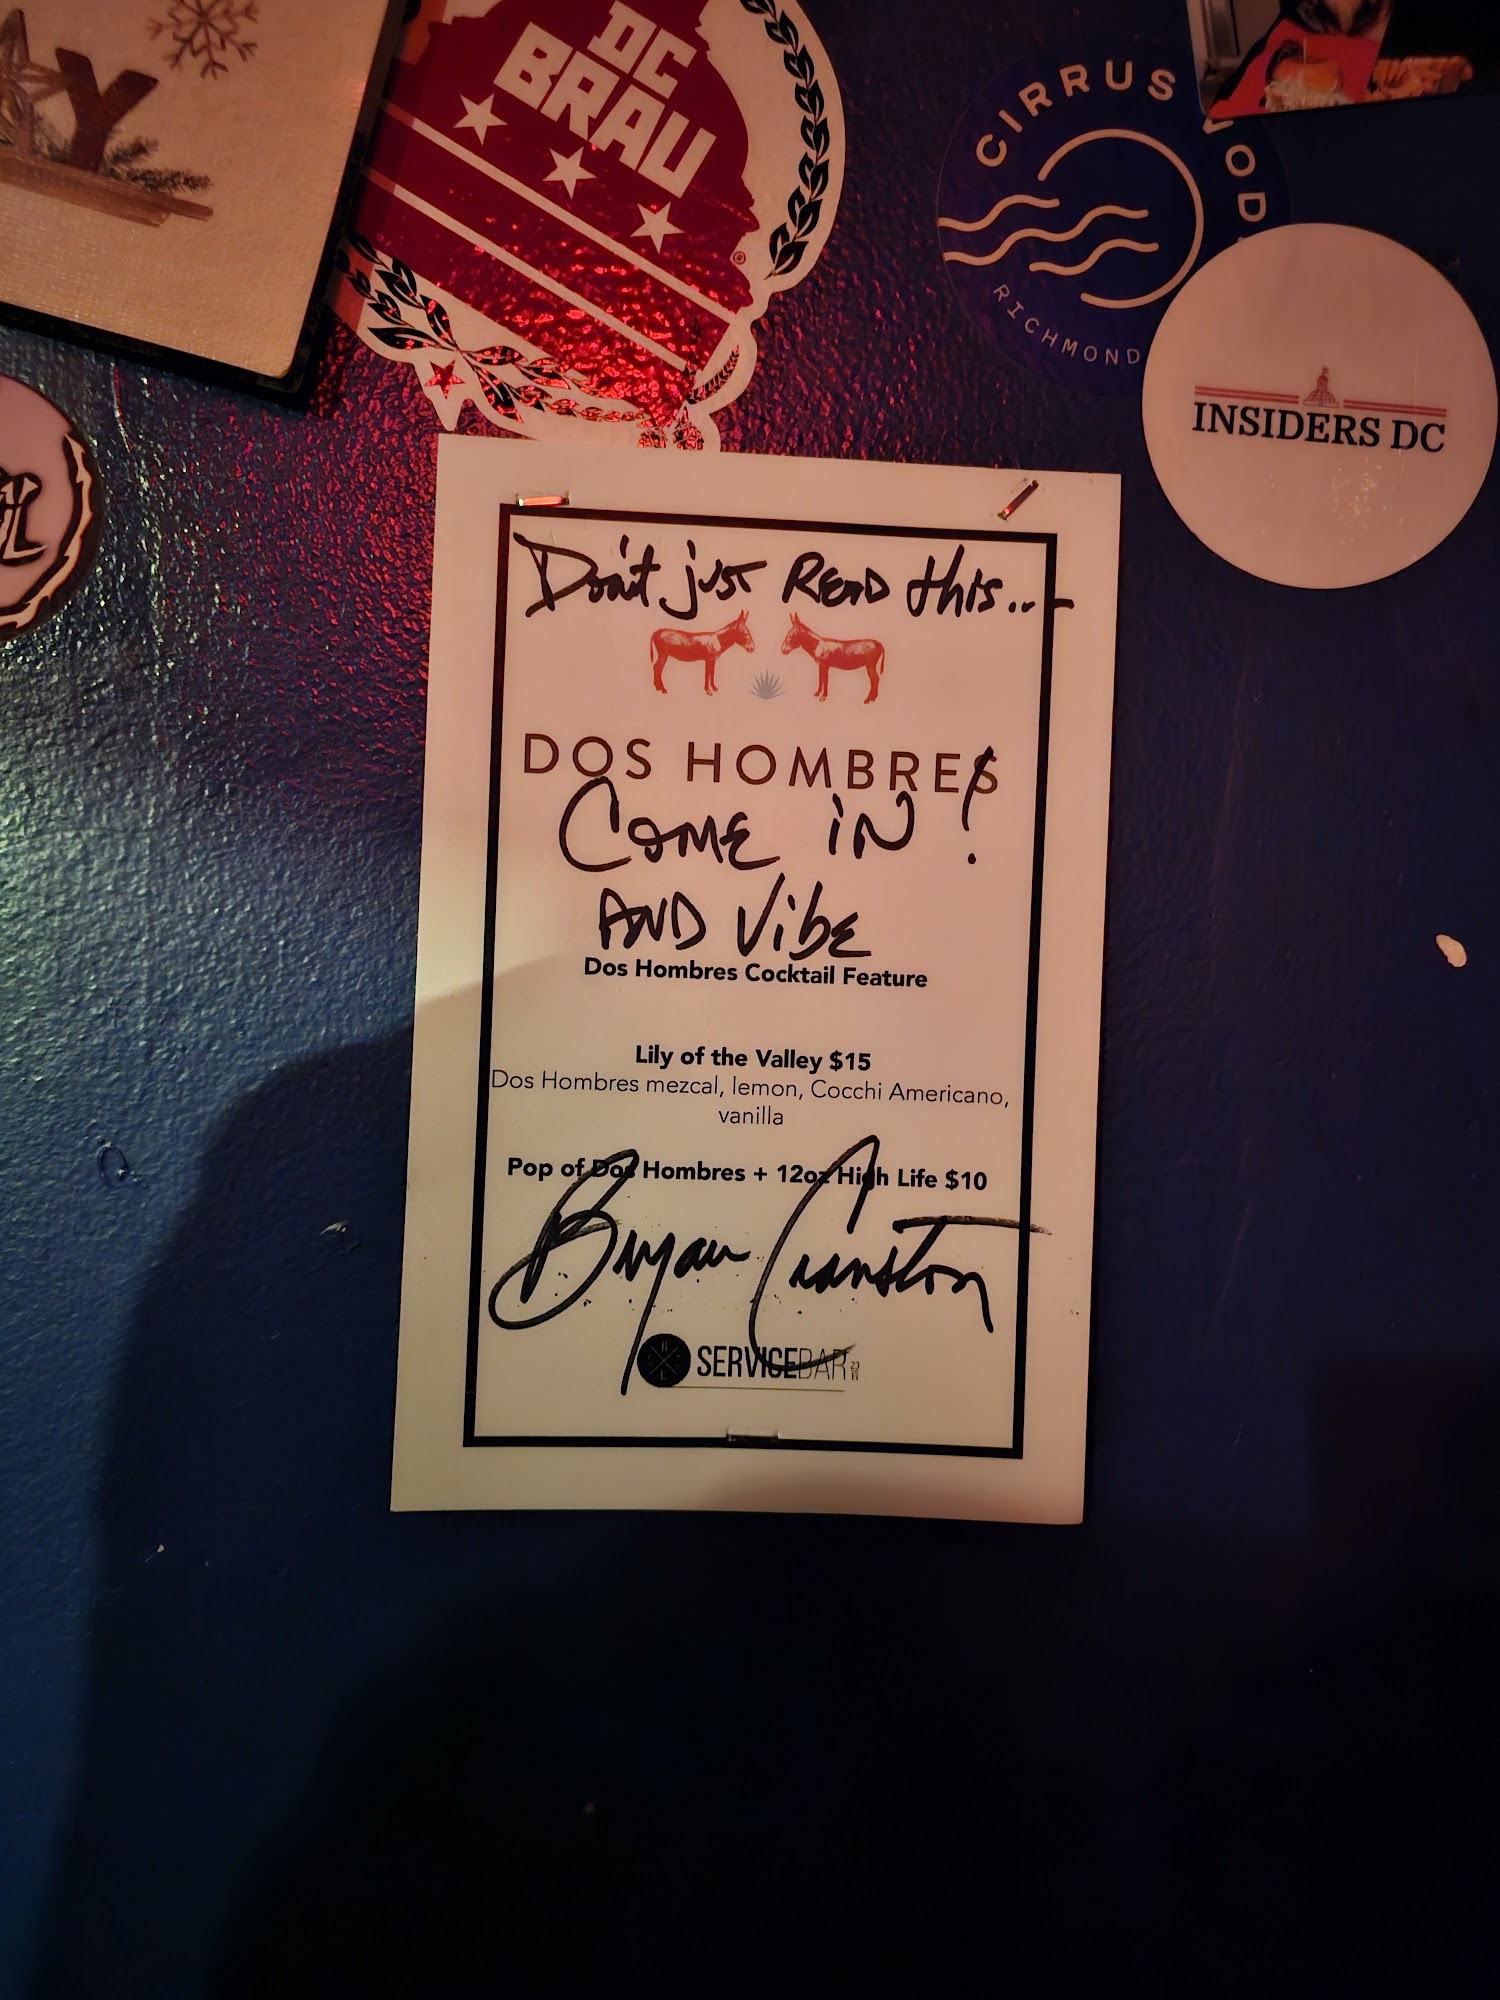 DC
BRAU
CIRRUS
RICHMOND
INSIDERS DC
Don't just READ this...
DOS HOMBRES
COME iN!
AND Vibe
Dos Hombres Cocktail Feature
Lily of the Valley $15
Dos Hombres mezcal, lemon, Cocchi Americano,
vanilla
Pop of Dos Hombres + 12oz High Life $10
Bryan Cranston
SERVICEBAR